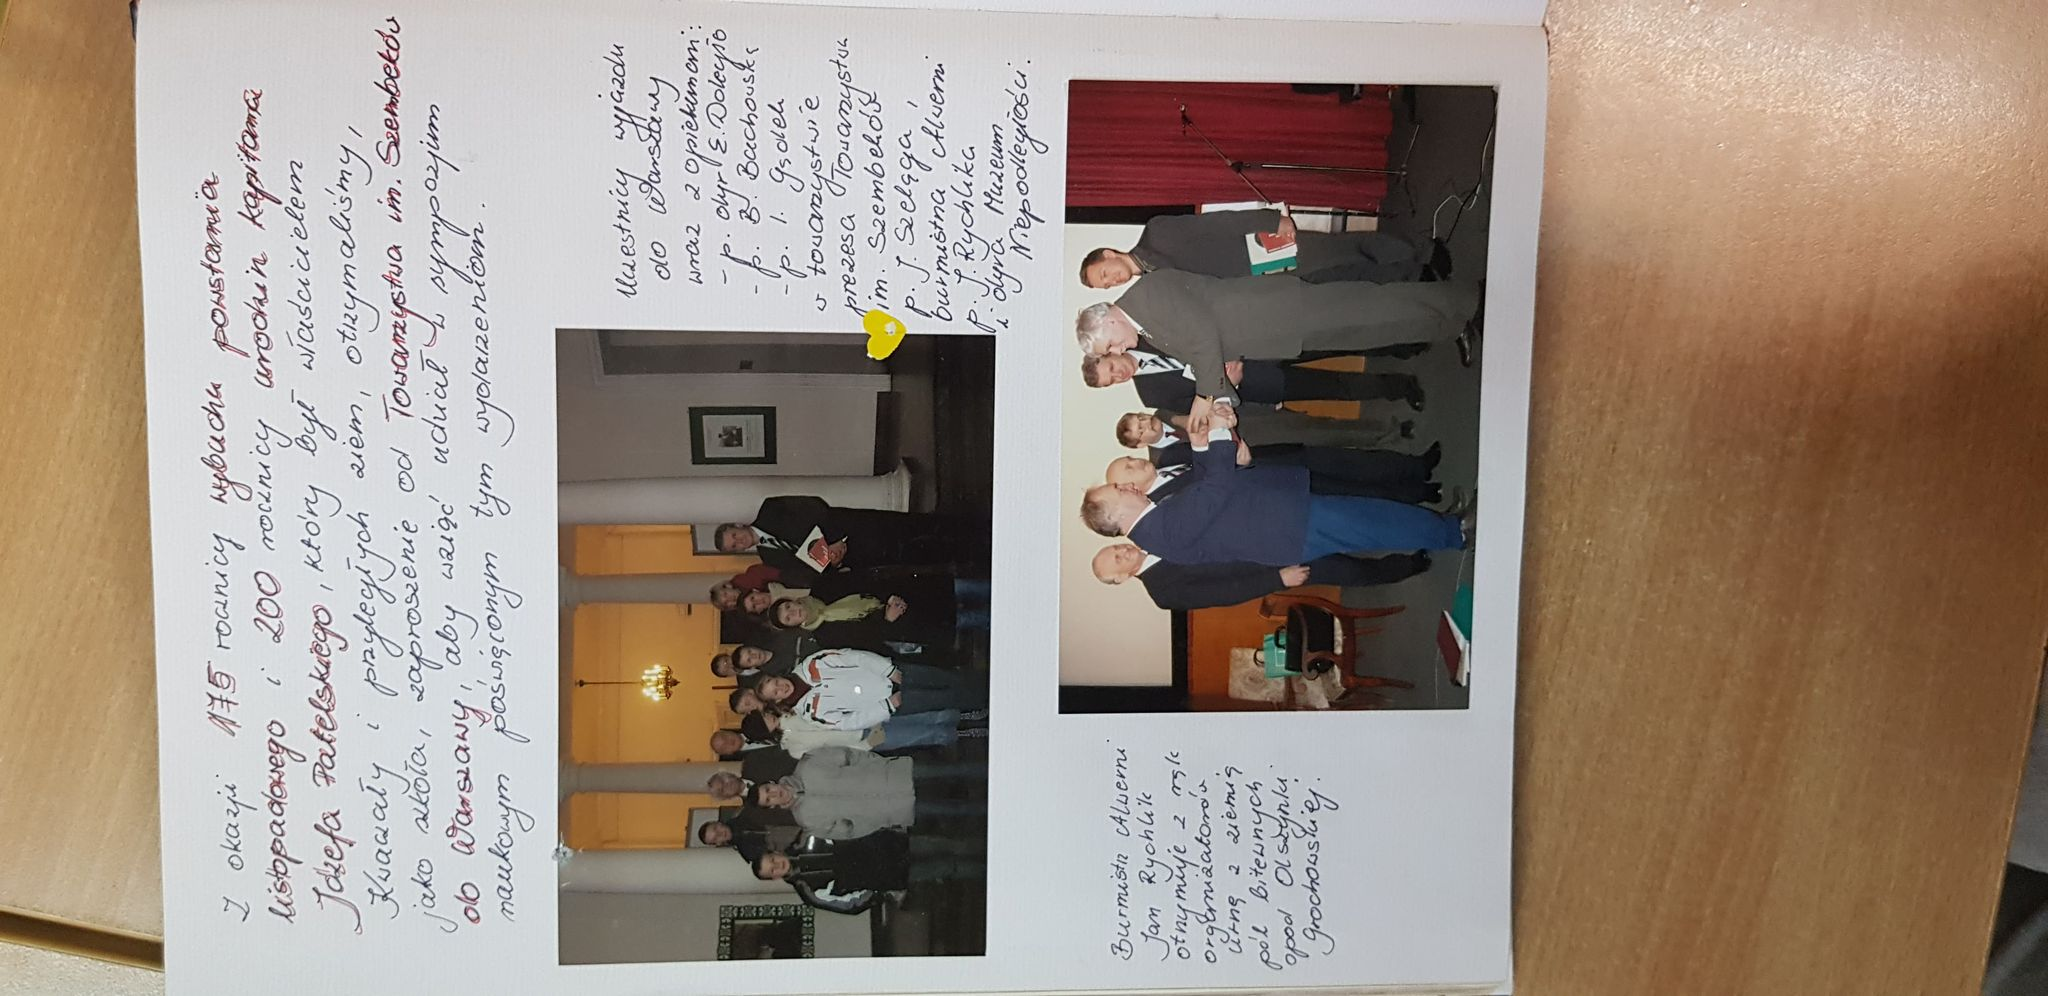 Z okazji 175 rocznicy wybuchu powstania
listopadowego i 200 rocznicy urodzin kapitana
Józefa Patelskiego, który był właścicielem
Kwaczały i przyległych ziem, otrzymaliśmy,
jako szkoła, zaproszenie od Towarzystwa im. Szembeków
do Warszawy, aby wziąć udział w sympozjum
naukowym poświęconym tym wydarzeniom.
Uczestnicy wyjazdu
do Warszawy
wraz z opiekunami:
- p. dyr E. Doleżyo
- p. B. Bachowską
- p. I. Gądek
w towarzystwie
prezesa Towarzystwa
im. Szembeków
p. J. Szeląga,
burmistrza Alwerni
p. J. Rychlika
i dyra Muzeum
Niepodległości.
Burmistrz Alwerni
Jan Rychlik
otrzymuje z rąk
organizatorów
urnę z ziemią
pól bitewnych
spod Olszynki
Grochowskiej.